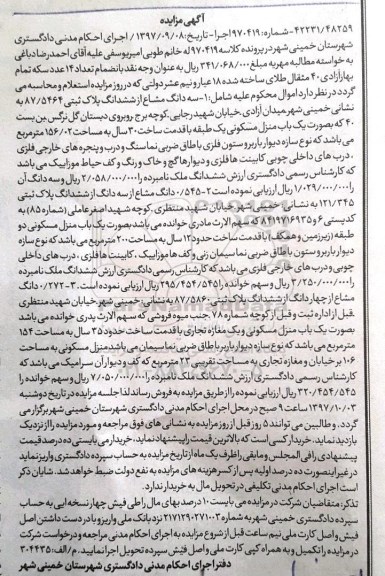 آگهی مزایده
۴۲۲۳۱/۴۸۲۵۹-شماره: ۹۷۰۴۱۹اجرا- تاریخ: ۱۳۹۷/۰۹/۰۸ / اجرای احکام مدنی دادگستری
شهرستان خمینی شهر در پرونده کلاسه ۹۷۰۴۱۹ له خانم طوبی امیریوسفی علیه آقای احمدرضا دباغی
به خواسته مطالبه مهریه مبلغ ۳۴۱/۰۶۸/۰۰۰ ریال به عنوان وجه نقد بانضمام تعداد ۱۴ عدد سکه تمام
بهار آزادی ۴۰ مثقال طلای ساخته شده ۱۸ عیار و نیم عشر دولتی که در روز مزایده استعلام و محاسبه می
گردد در نظر دارد اموال محکوم علیه شامل: ۱-سه دانگ مشاع از ششدانگ پلاک ثبتی ۸۷/۵۴۶۴ به
نشانی خمینی شهر میدان آزادی .خیابان شهید رجایی.کوچه برج روبروی دبستان گل نرگس بن بست
۴۰ که بصورت یک باب منزل مسکونی یک طبقه با قدمت ساخت ۳۰ سال به مساحت ۱۵۶/۰۲ مترمربع
می باشد که نوع سازه دیوار باربر و ستون فلزی با طاق ضربی نما سنگ و درب و پنجره های خارجی فلزی
، درب های داخلی چوبی کابینت ها فلزی و دیوارها گچ و خاک و رنگ و کف حیاط موزاییک می باشد
که کارشناس رسمی دادگستری ارزش ششدانگ ملک نامبرده را ۲/۰۵۸/۰۰۰/۰۰۰ ریال و سه دانگ آن
را ۱/۰۲۹/۰۰۰/۰۰۰ ریال ارزیابی نموده است ۲-۰/۵۴۵ دانگ مشاع از سه دانگ از ششدانگ پلاک ثبتی
۱۲۱/۳۴۵ به نشانی خمینی شهر خیابان شهید منتظری .کوچه شهید اصغر عاملی (شماره ۸۵) به
کدپستی ۸۴۱۹۷۱۶۹۳۵۶ که سهم الارث مادری خوانده می باشد بصورت یک باب منزل مسکونی دو
طبقه (زیرزمین و همکف) با قدمت ساخت حدود ۱۲ سال به مساحت ۲۰۰ مترمربع می باشد که نوع سازه
دیوار باربر و ستون با طاق ضربی نما سیمان زنی و کف ها موزاییک ، کابینت ها فلزی ، درب های داخلی
چوبی و درب های خارجی فلزی می باشد که کارشناس رسمی دادگستری ارزش ششدانگ ملک نامبرده
را ۳/۲۵۰/۰۰۰/۰۰۰ ریال و سهم خوانده را ۲۹۵/۴۵۴/۵۴۵ ریال ارزیابی نموده است.۳-۰/۲۷۲ دانگ
مشاع از چهار دانگ از ششدانگ پلاک ثبتی ۸۷/۵۸۶۰ به نشانی : خمینی شهر.خیابان شهید منتظری
.قبل از اداره ثبت و قبل از کوچه شماره ۷۸ .جنب میوه فروشی که سهم الارث پدری خوانده می باشد
بصورت یک باب منزل مسکونی و یک مغازه تجاری با قدمت ساخت حدود ۳۵ سال به مساحت ۱۵۴
مترمربع می باشد که نوع سازه دیوار باربر با طاق ضربی نما سیمان می باشد منزل مسکونی به مساحت
۱۰۶ بر خیابان و مغازه تجاری به مساحت تقریبی ۲۳ مترمربع که کف و دیوار آن سرامیک می باشد که
کارشناس رسمی دادگستری ارزش ششدانگ ملک نامبرده را ۷/۰۵۰/۰۰۰/۰۰۰ ریال و سهم خوانده را
۳۲۰/۴۵۴/۵۴۵ ریال ارزیابی نموده را از طریق مزایده به فروش رساند لذا جلسه مزایده در تاریخ دوشنبه
۱۳۹۷/۱۰/۰۳ ساعت ۹ صبح در محل اجرای احکام مدنی دادگستری شهرستان خمینی شهر برگزار می
گردد . و طالبین می توانند ۵ روز قبل از روز مزایده به نشانی های فوق مراجعه و مورد مزایده را از نزدیک
بازدید نماید. خریدار کسی است که بالاترین قیمت را پیشنهاد نماید. خریدار می بایستی ده درصد قیمت
پیشنهادی را فی المجلس و مابقی را ظرف یک ماه از تاریخ مزایده به حساب سپرده دادگستری واریز نماید
در غیر اینصورت ده درصد اولیه پس از کسر هزینه های مزایده به نفع دولت ضبط خواهد شد. شایان ذکر
است اجرای احکام مدنی تکلیفی در تحویل مال به خریدار ندارد.
تذکر: متقاضیان شرکت در مزایده می بایست ۱۰ درصد بهای مال را طی فیش چهار نسخه ایی به حساب
سپرده دادگستری خمینی شهر به شماره ۲۱۷۱۲۹۰۲۷۱۰۰۳ نزد بانک ملی واریز و با در دست داشتن اصل
فیش و اصل کارت ملی نیم ساعت قبل از شروع مزایده به اجرای احکام مدنی مراجعه و درخواست شرکت
در مزایده را تکمیل و به همراه کپی کارت ملی و اصل فیش سپرده تحویل اجرا نمایید. م/الف: ۳۰۴۴۳۵
دفتر اجرای احکام مدنی دادگستری شهرستان خمینی شهر